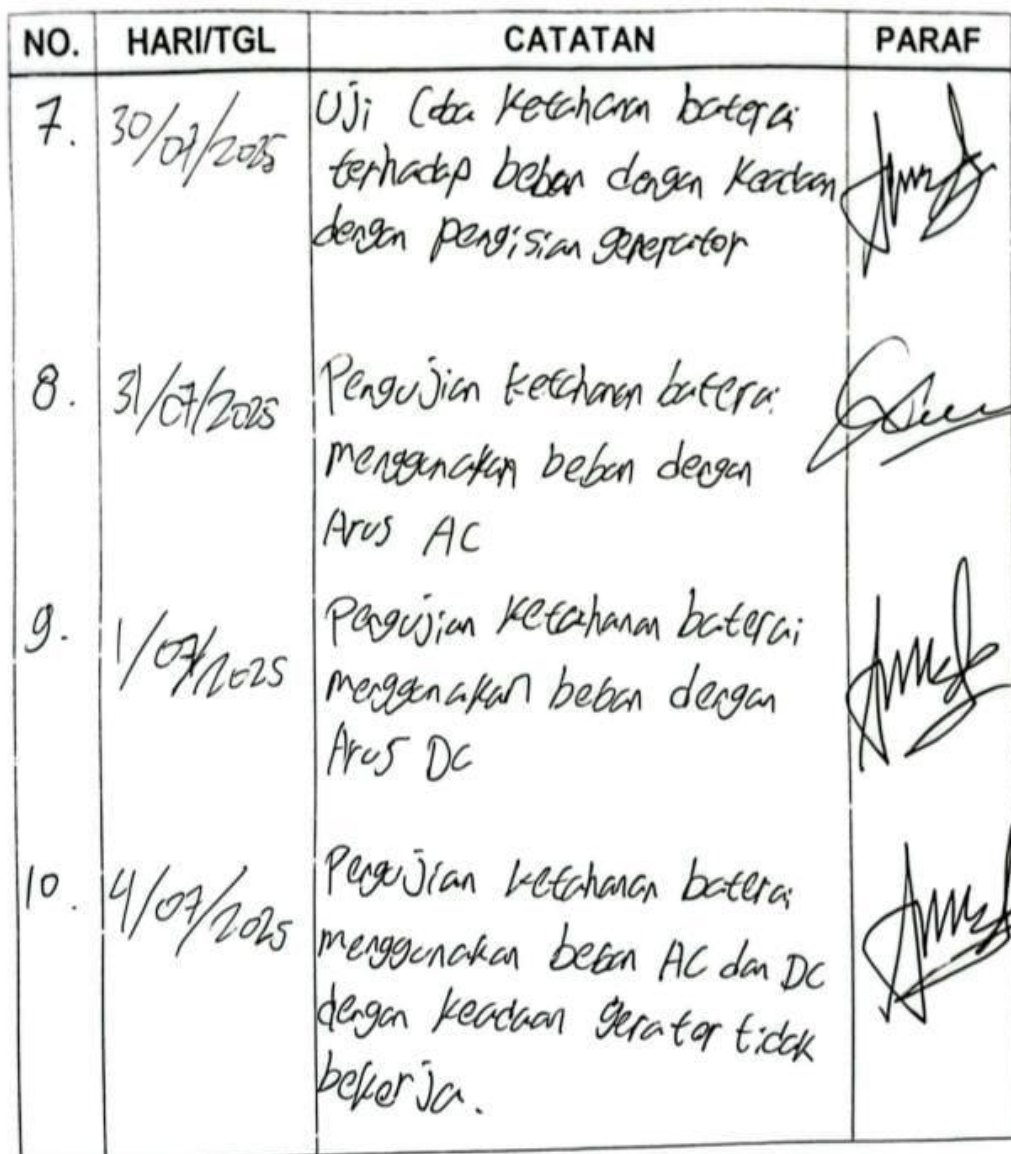 NO. HARI/TGL CATATAN PARAF
7. 30/07/2025 Uji Coba Ketahanan baterai
terhadap beban dengan Keadaan
dengan pengisian generator
8. 31/07/2025 Pengujian ketahanan baterai
menggunakan beban dengan
Arus AC
9. 1/07/2025 Pengujian Ketahanan baterai
menggunakan beban dengan
Arus DC
10. 4/07/2025 Pengujian ketahanan baterai
menggunakan beban AC dan DC
dengan keadaan gerator tidak
bekerja.